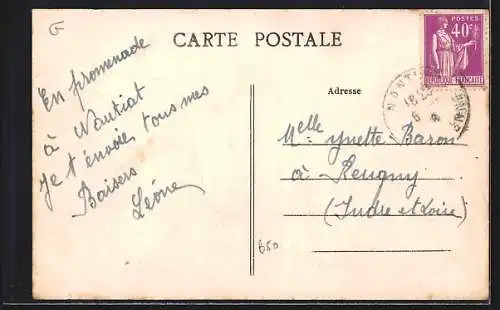 G
CARTE POSTALE
POSTES
40c
RÉPUBLIQUE FRANÇAISE
NANTI
18
6
Adresse
En promenade
à Nantiat
Je t'envoies tous mes
Baisers
Léone
Melle Yvette Baron
à Reugny
(Indre et Loire)
650